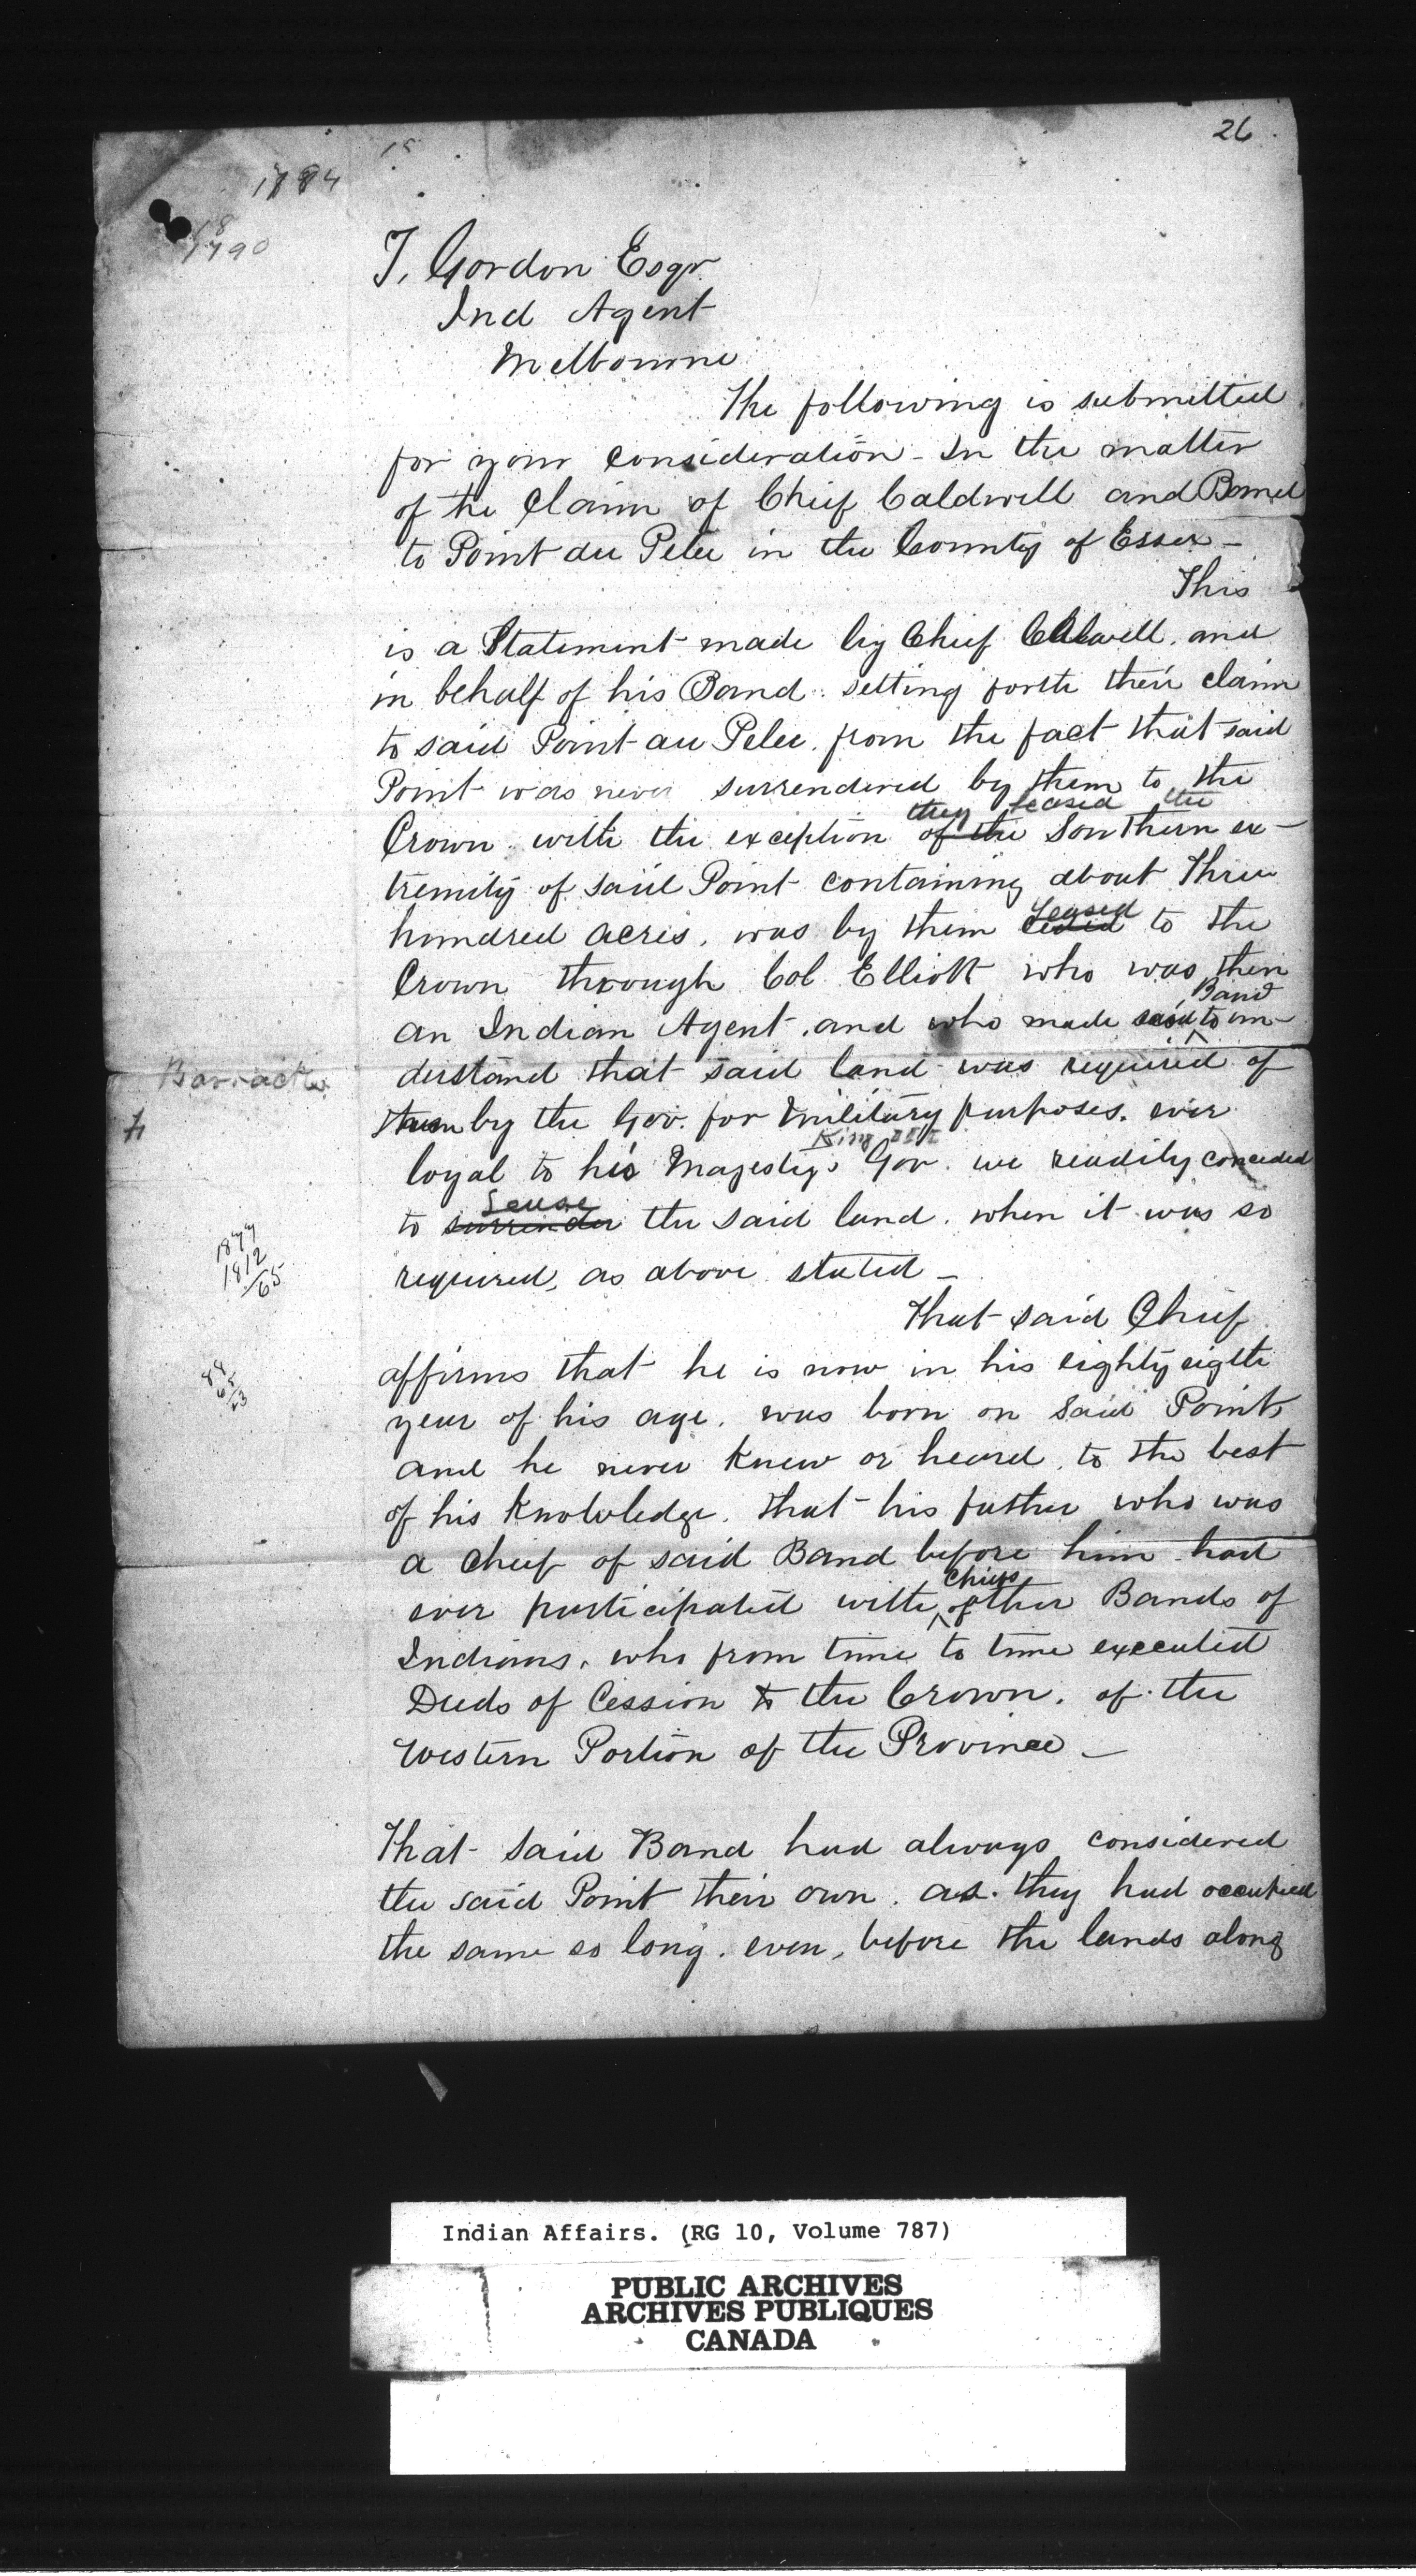 26
1784
1790
T. Gordon Esqr
Ind Agent
Melbourne
The following is submitted
for your consideration - In the matter
of the Claim of Chief Caldwell and Band
to Point du Pelee in the County of Essex -
This
is a Statement made by Chief Caldwell. and
in behalf of his Band. setting forth their claim
to said Point au Pelee. from the fact that said
Point was never surrendered by them to the
they leased the
Crown. with the exception of the Southern ex-
tremity of said Point containing about three
hundred acres. was by them ceded Leased to the
Crown through Col Elliott who was then
an Indian Agent. and who made said Band to un-
Barracks
derstand that said land was required of
them by the Gov. for military purposes. ever
King III
loyal to his Magestys Gov. we readily conceded
to surrender Lease the said land. when it was so
required, as above stated -
1877
1812
65
That said Chief
affirms that he is now in his eighty eigth
88
65
23
year of his age. was born on said Point,
and he never knew or heard, to the best
of his knowledge. that his father who was
a chief of said Band before him had
ever participated with chiefs of other Bands of
Indians. who from time to time executed
Deeds of Cession to the Crown. of the
Western Portion of the Province -
That said Band had always considered
the said Point their own. as. they had occupied
the same so long. even, before the lands along
Indian Affairs. (RG 10, Volume 787)
PUBLIC ARCHIVES
ARCHIVES PUBLIQUES
CANADA